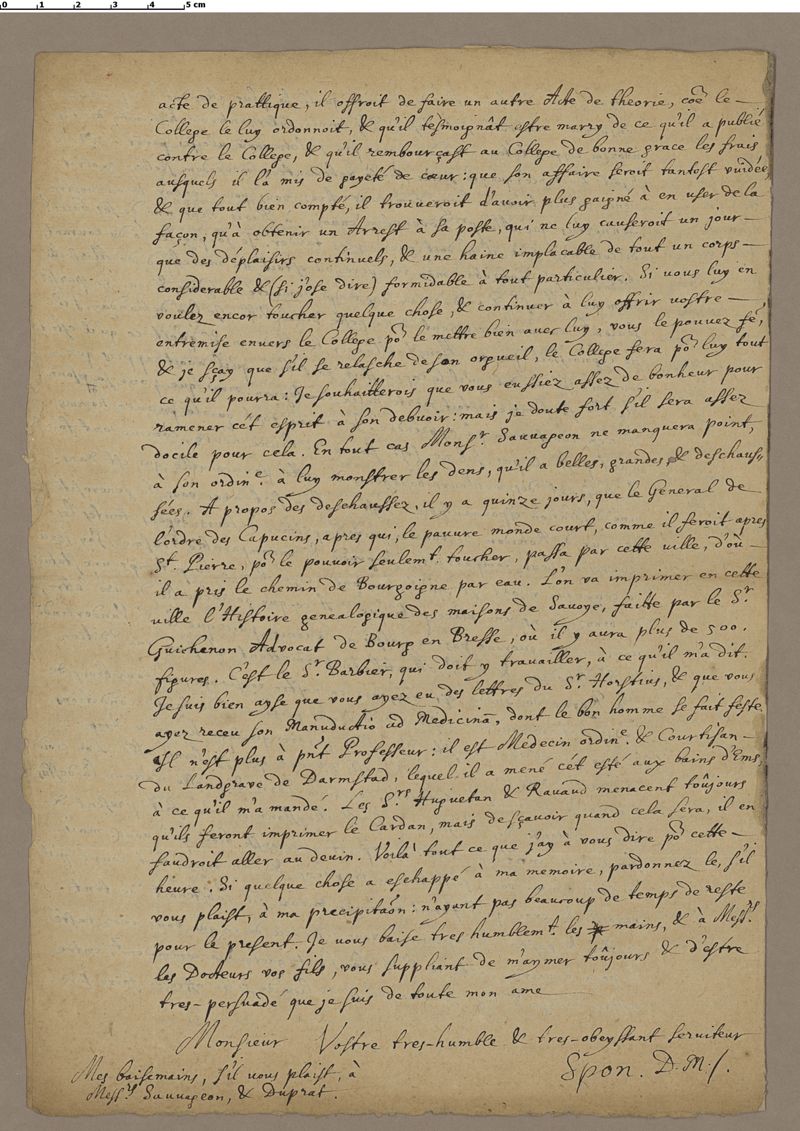 0 1 2 3 4 5 cm
acte de prattique, il offroit de faire un autre Acte de theorie, coē le
College le luy ordonnoit, & qu'il tesmoignât estre marry de ce qu'il a publié
contre le College, & qu'il remboursast au College de bonne grace les frais
ausquels il l'a mis de gayeté de cœur: que son affaire seroit tantost vuidée
& que tout bien compté, il trouveroit d'avoir plus gaigné à en user de la
façon, qu'à obtenir un Arrest à sa poste, qui ne luy causeroit un jour
que des déplaisirs continuels, & une haine implacable de tout un corps
considerable & (si j'ose dire) formidable à tout particulier. Si vous luy en
voulez encor toucher quelque chose, & continuer à luy offrir vostre
entremise envers le College po^r le mettre bien avec luy, vous le pouvez fē,
& je sçay que s'il se relasche de son orgueil, le College fera po^r luy tout
ce qu'il pourra: Je souhaitterois que vous eussiez assez de bonheur pour
ramener cét esprit à son debvoir: mais je doute fort s'il sera assez
docile pour cela. En tout cas Mons^r. Sauvageon ne manquera point,
à son ordin^e. à luy monstrer les dens, qu'il a belles, grandes & deschaus-
sées. A propos des deschaussez, il y a quinze jours, que le General de
l'ordre des Capucins, apres qui, le pauvre monde court, comme il feroit apres
S^t. Pierre, po^r le pouvoir seulem^t. toucher, passa par cette ville, d'où
il a pris le chemin de Bourgoigne par eau. L'on va imprimer en cette
ville l'Histoire genealogique des maisons de Savoye, faitte par le S^r.
Guichenon Advocat de Bourg en Bresse, où il y aura plus de 500.
figures. C'est le S^r. Barbier, qui doit y travailler, à ce qu'il m'a dit.
Je suis bien ayse que vous ayez eu des lettres du S^r. Horstius, & que vous
ayez receu son Manuductio ad Medicinā, dont le bon homme se fait feste.
Il n'est plus à pñt Professeur: il est Médecin ordin^e. & Courtisan
du Landgrave de Darmstad, lequel il a mené cét esté aux bains d'Ems,
à ce qu'il m'a mandé. Les S^rs. Huguetan & Ravaud menacent toûjours
qu'ils feront imprimer le Cardan, mais de sçavoir quand cela sera, il en
faudroit aller au devin. Voilà tout ce que j'ay à vous dire po^r cette
heure. Si quelque chose a eschappé à ma memoire, pardonnez le, s'il
vous plaist, à ma precipitaōn: n'ayant pas beaucoup de temps de reste
pour le present. Je vous baise tres humblem^t. les mains, & à Mess^rs.
les Docteurs vos fils, vous suppliant de m'aymer toûjours & d'estre
tres-persuadé que je suis de toute mon ame
Monsieur Vostre tres-humble & tres-obeyssant serviteur
Spon. D.M.
Mes baisemains, s'il vous plaist, à
Mess^rs. Sauvageon, & Duprat.